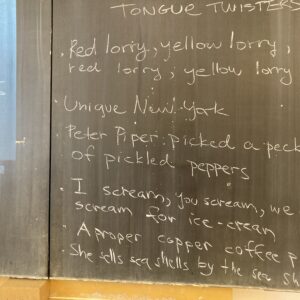 TONGUE TWISTERS
• Red lorry, yellow lorry,
red lorry, yellow lorry
• Unique New York
• Peter Piper picked a peck
of pickled peppers
• I scream, you scream, we
scream for ice-cream
• A proper copper coffee p
• She sells sea shells by the sea sh